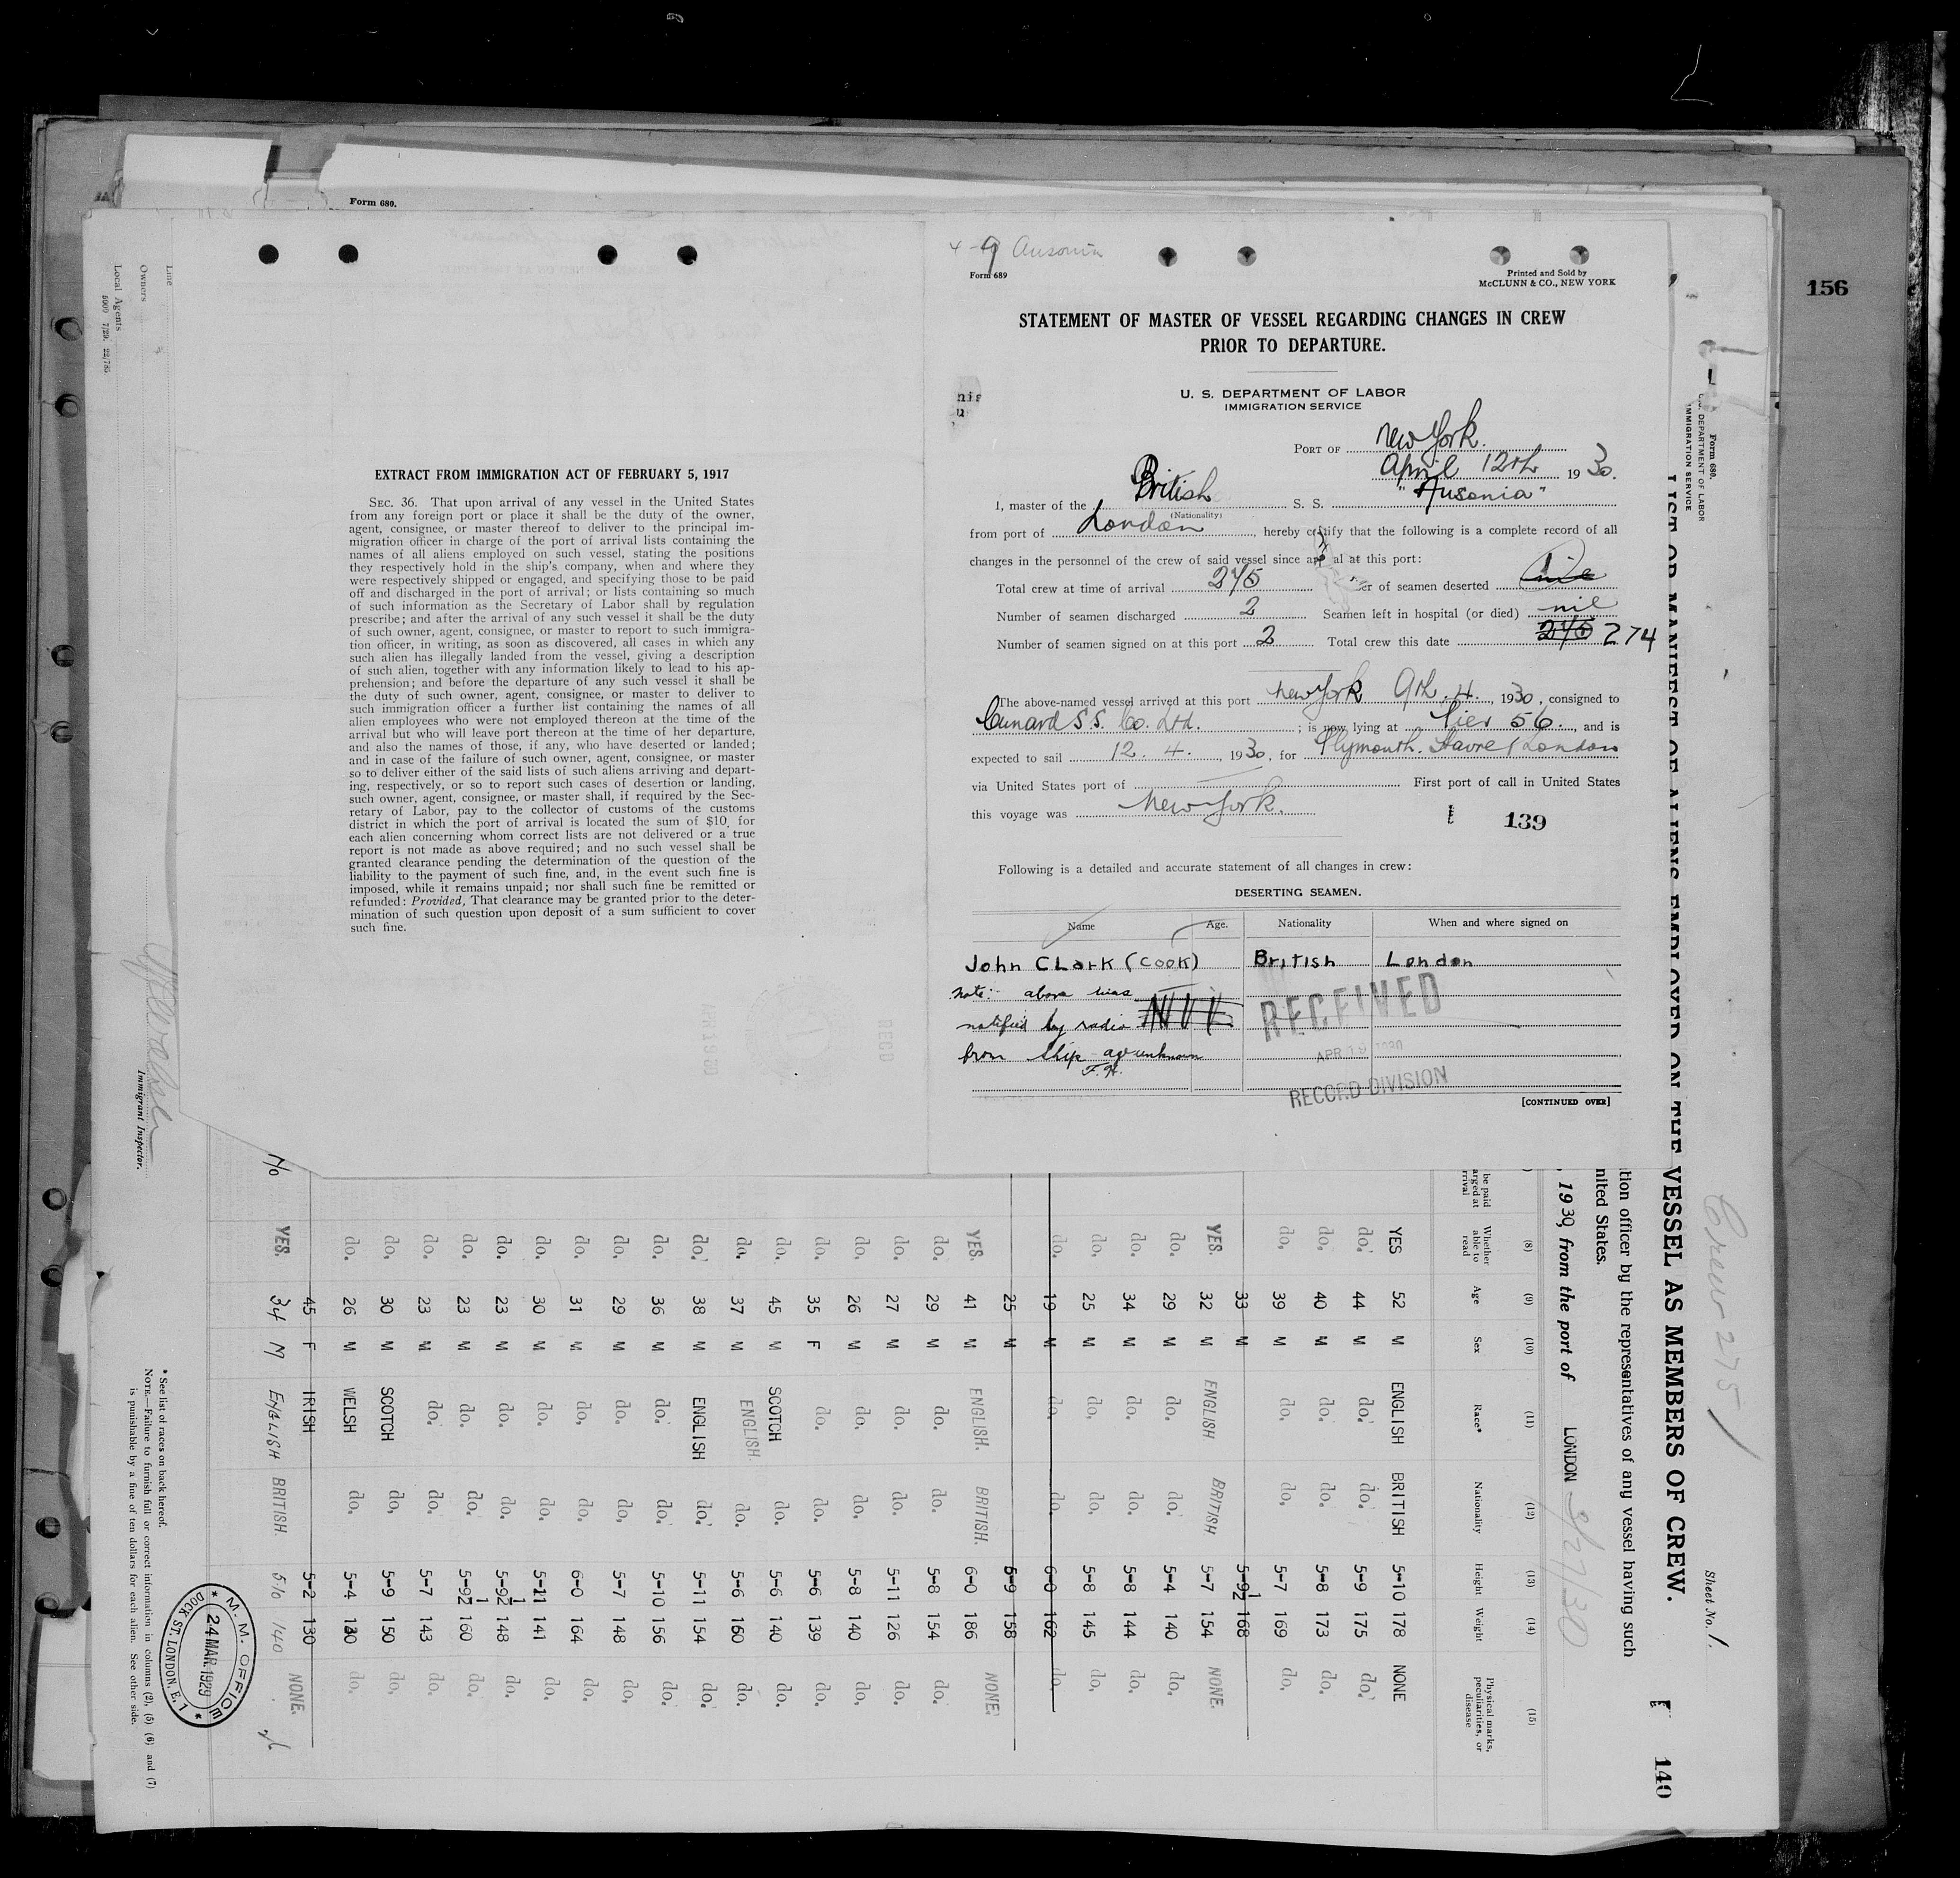 4-9 Ausonia
Form 680.
Form 689
Printed and Sold by
McCLUNN & CO., NEW YORK
156
STATEMENT OF MASTER OF VESSEL REGARDING CHANGES IN CREW
PRIOR TO DEPARTURE.
U. S. DEPARTMENT OF LABOR
IMMIGRATION SERVICE
PORT OF New York.
April 12th 1930.
I, master of the British S. S. "Ausonia"
(Nationality)
from port of London, hereby certify that the following is a complete record of all
changes in the personnel of the crew of said vessel since al at this port:
Total crew at time of arrival 275 er of seamen deserted
Number of seamen discharged 2 Seamen left in hospital (or died) nil
Number of seamen signed on at this port 2 Total crew this date 275 274
The above-named vessel arrived at this port New York 9th. 4., 1930, consigned to
Cunard S.S. Co. Ltd. ; is now lying at Pier 56., and is
expected to sail 12. 4., 1930, for Plymouth. Havre / London
via United States port of First port of call in United States
this voyage was New York.
139
Following is a detailed and accurate statement of all changes in crew:
DESERTING SEAMEN.
Name Age. Nationality When and where signed on
John Clark (Cook) British London
Note: above was
notified by radio
from ship age unknown
F.H.
RECEIVED
APR 1930
RECORD DIVISION
[CONTINUED OVER]
EXTRACT FROM IMMIGRATION ACT OF FEBRUARY 5, 1917
SEC. 36. That upon arrival of any vessel in the United States
from any foreign port or place it shall be the duty of the owner,
agent, consignee, or master thereof to deliver to the principal im-
migration officer in charge of the port of arrival lists containing the
names of all aliens employed on such vessel, stating the positions
they respectively hold in the ship's company, when and where they
were respectively shipped or engaged, and specifying those to be paid
off and discharged in the port of arrival; or lists containing so much
of such information as the Secretary of Labor shall by regulation
prescribe; and after the arrival of any such vessel it shall be the duty
of such owner, agent, consignee, or master to report to such immigra-
tion officer, in writing, as soon as discovered, all cases in which any
such alien has illegally landed from the vessel, giving a description
of such alien, together with any information likely to lead to his ap-
prehension; and before the departure of any such vessel it shall be
the duty of such owner, agent, consignee, or master to deliver to
such immigration officer a further list containing the names of all
alien employees who were not employed thereon at the time of the
arrival but who will leave port thereon at the time of her departure,
and also the names of those, if any, who have deserted or landed;
and in case of the failure of such owner, agent, consignee, or master
so to deliver either of the said lists of such aliens arriving and depart-
ing, respectively, or so to report such cases of desertion or landing,
such owner, agent, consignee, or master shall, if required by the Sec-
retary of Labor, pay to the collector of customs of the customs
district in which the port of arrival is located the sum of $10 for
each alien concerning whom correct lists are not delivered or a true
report is not made as above required; and no such vessel shall be
granted clearance pending the determination of the question of the
liability to the payment of such fine, and, in the event such fine is
imposed, while it remains unpaid; nor shall such fine be remitted or
refunded: Provided, That clearance may be granted prior to the deter-
mination of such question upon deposit of a sum sufficient to cover
such fine.
Form 680.
U. S. DEPARTMENT OF LABOR
IMMIGRATION SERVICE
Crew 275
Sheet No. 1.
140
LIST OR MANIFEST OF ALIENS EMPLOYED ON THE VESSEL AS MEMBERS OF CREW.
tion officer by the representatives of any vessel having such
nited States.
, 1930, from the port of LONDON 3/27/30
(8) (9) (10) (11) (12) (13) (14) (15)
be paid
arged at
rrival
Whether able to read Age Sex Race* Nationality Height Weight Physical marks, peculiarities, or disease
YES 52 M ENGLISH BRITISH 5-10 178 NONE
do. 44 M do. do. 5-9 175 do.
do. 40 M do. do. 5-8 173 do.
do. 39 M do. do. 5-7 169 do.
33 M 5-9½ 168
YES. 32 M ENGLISH BRITISH 5-7 154 NONE.
do. 29 M do. do. 5-4 140 do.
do. 34 M do. do. 5-8 144 do.
do. 25 M do. do. 5-8 145 do.
do. 19 M do. do. 6-0 162 do.
25 M 5-9 158
YES. 41 M ENGLISH. BRITISH. 6-0 186 NONE.
do. 29 M do. do. 5-8 154 do.
do. 27 M do. do. 5-11 126 do.
do. 26 M do. do. 5-8 140 do.
do. 35 F do. do. 5-6 139 do.
do. 45 M SCOTCH do. 5-6 140 do.
do. 37 M ENGLISH do. 5-6 160 do.
do. 38 M ENGLISH do. 5-11 154 do.
do. 36 M do. do. 5-10 156 do.
do. 29 M do. do. 5-7 148 do.
do. 31 M do. do. 6-0 164 do.
do. 30 M do. do. 5-11 141 do.
do. 23 M do. do. 5-9½ 148 do.
do. 23 M do. do. 5-9½ 160 do.
do. 23 M do. do. 5-7 143 do.
do. 30 M SCOTCH do. 5-9 150 do.
do. 26 M WELSH do. 5-4 130 do.
45 F IRISH 5-2 130
No YES. 34 M ENGLISH BRITISH. 5/10 140 NONE.
* See list of races on back hereof.
NOTE.—Failure to furnish full or correct information in columns (2), (5) (6) and (7)
is punishable by a fine of ten dollars for each alien. See other side.
M. M. OFFICE
24 MAR. 1929
DOCK ST. LONDON, E. 1
Immigrant Inspector.
Line
Owners
Local Agents